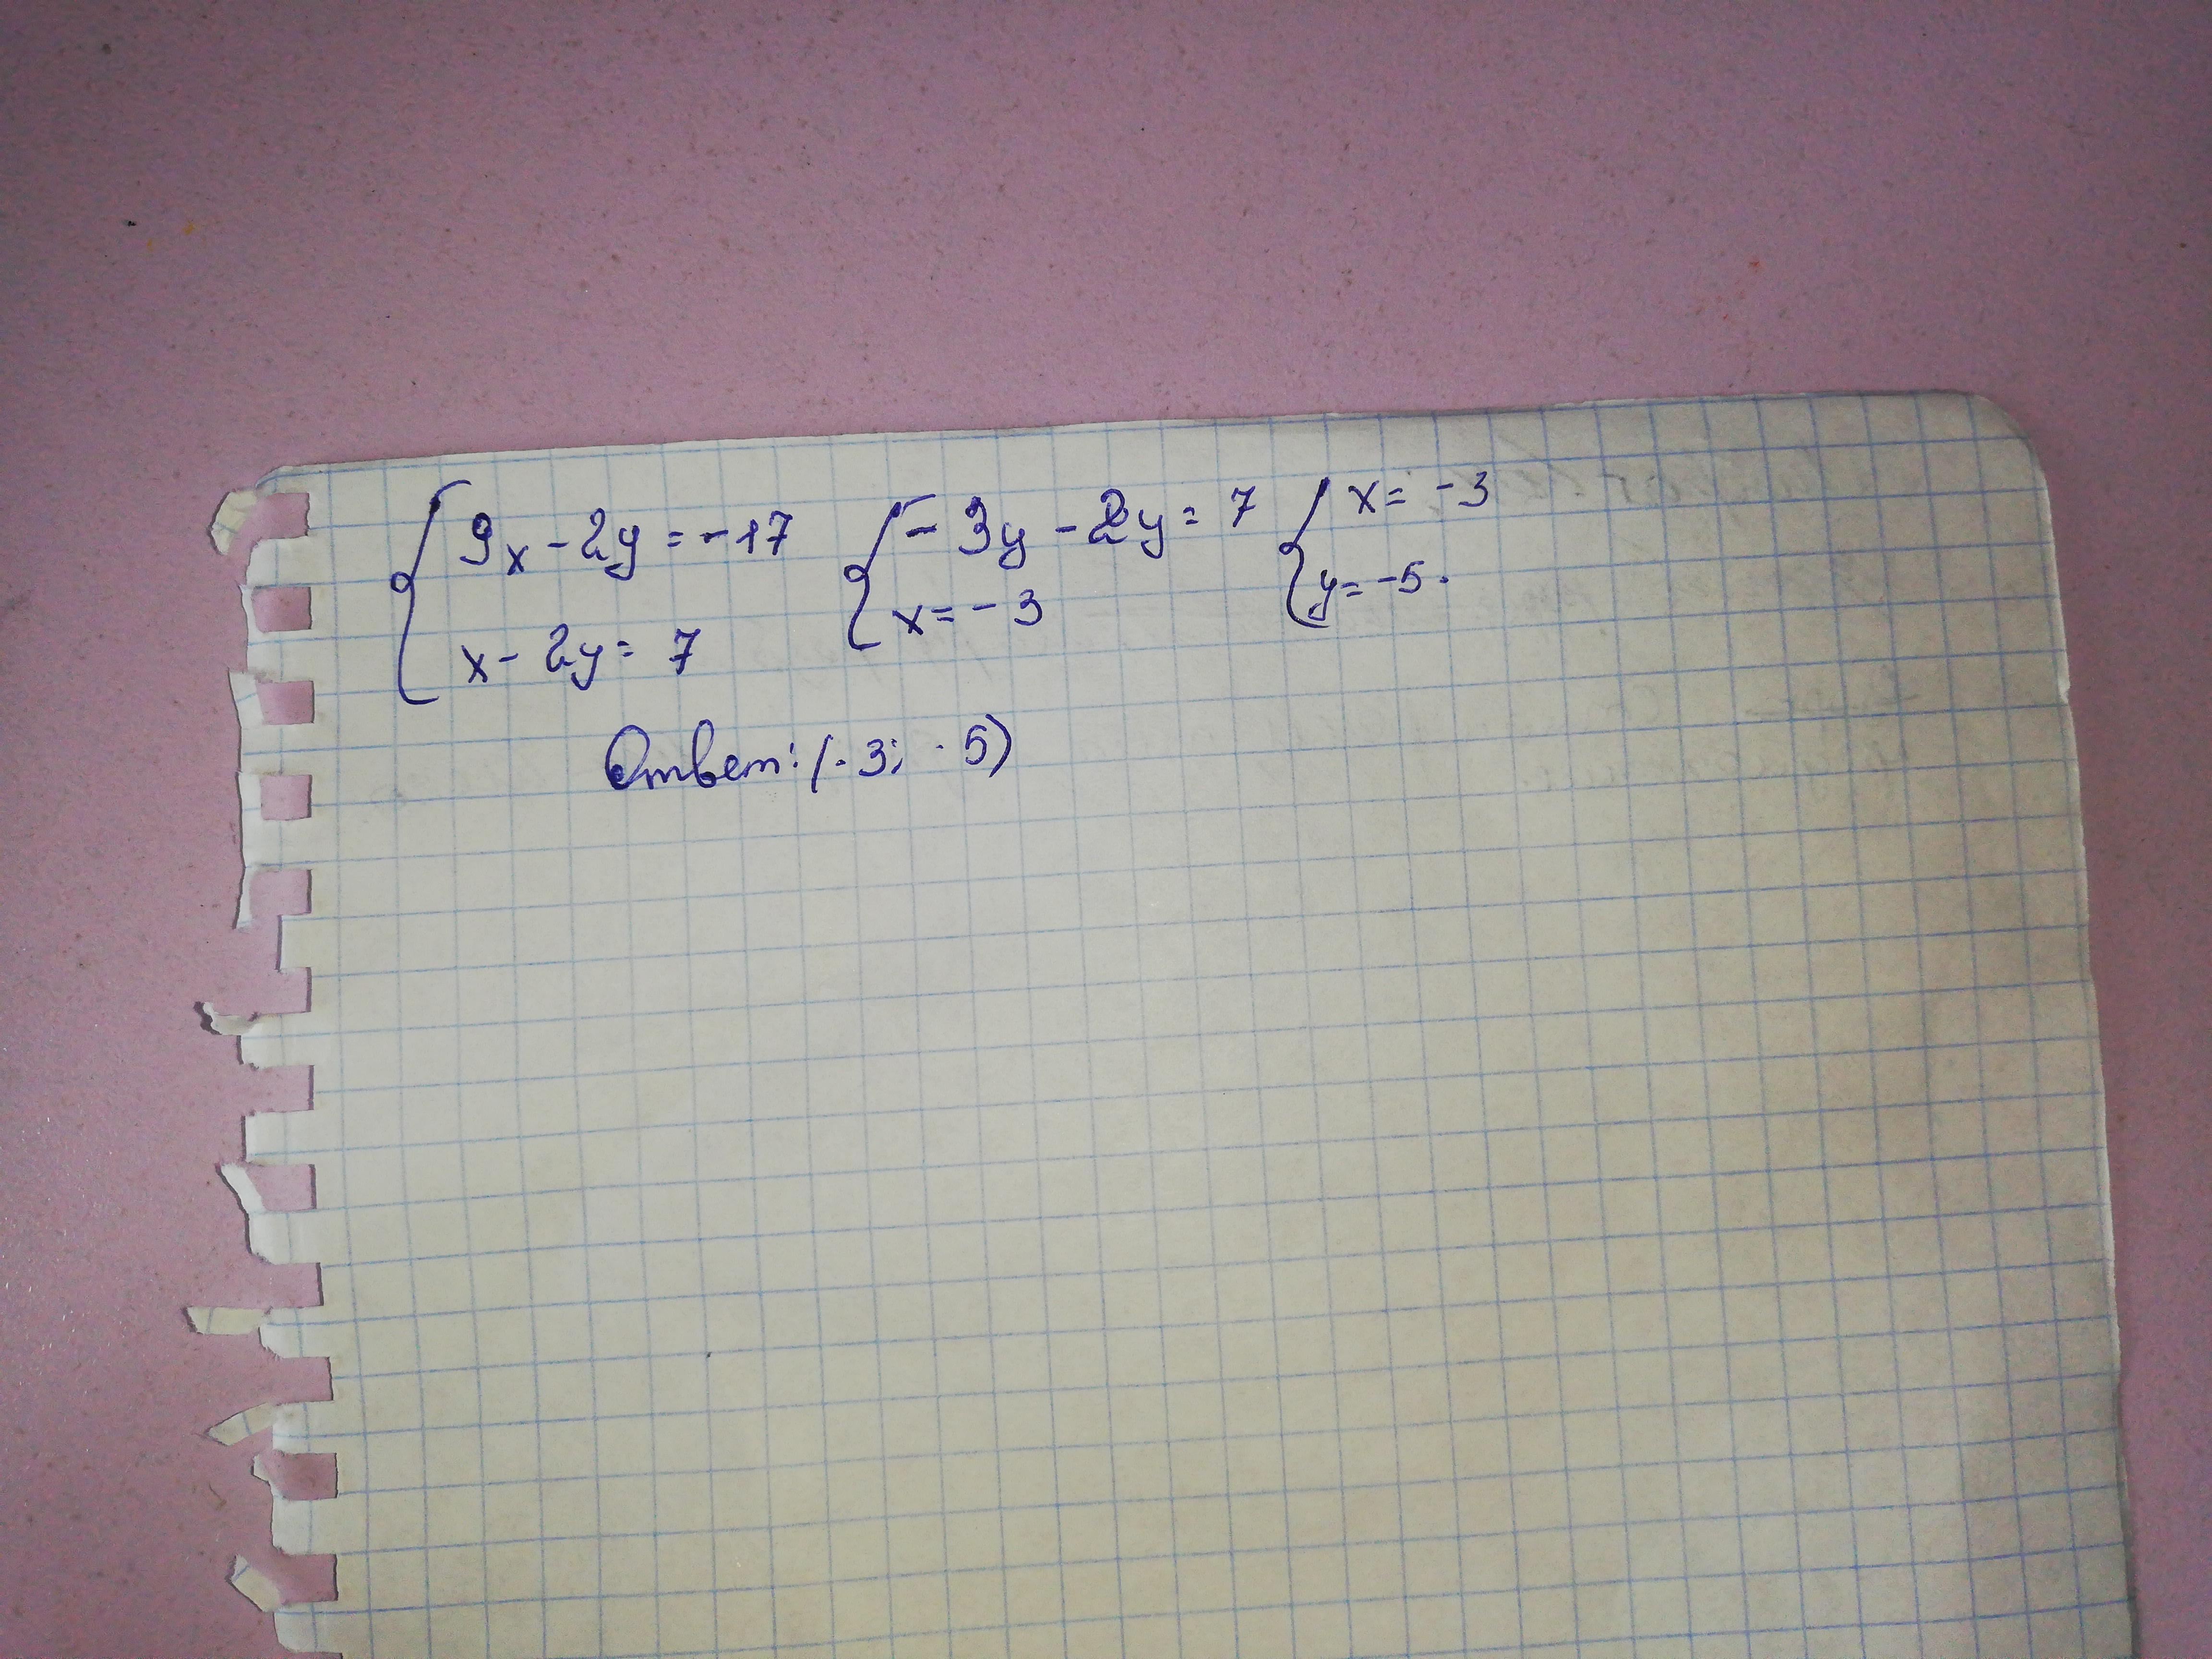 9x - 2y = -17
x - 2y = 7
- 3y - 2y = 7
x = - 3
x = -3
y = -5.
Ответ: (-3; -5)